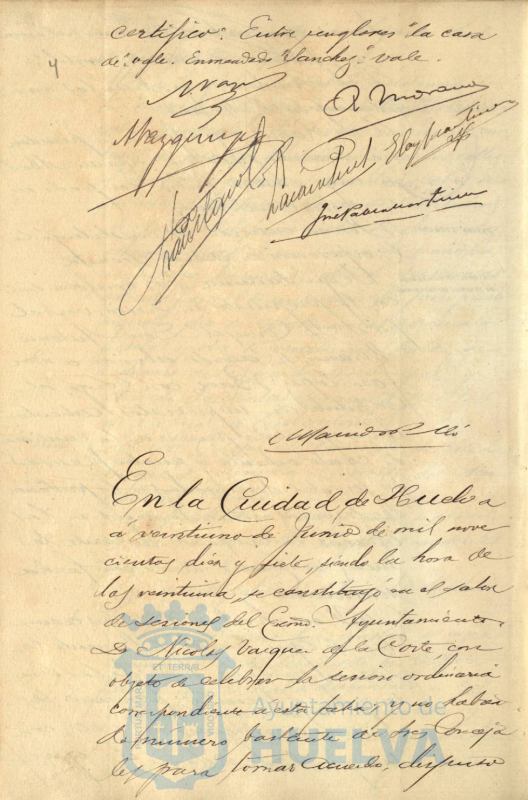 certifico: Entre renglones "la casa
de" vale. Enmendado "Sanchez" vale.
4
A. Moreno
En la Ciudad de Huelva
a veintiuno de Junio de mil nove
cientos diez y siete, siendo la hora de
las veintiuna, se constituyó en el salon
de sesiones del Excmo. Ayuntamiento
D. Nicolas Vazquez de la Corte, con
objeto de celebrar la sesion ordinaria
correspondiente a este dia, y no habien
do numero bastante de Sres Conceja
les para tomar acuerdo, dispuso
ET TERRAE
Ayuntamiento de
HUELVA